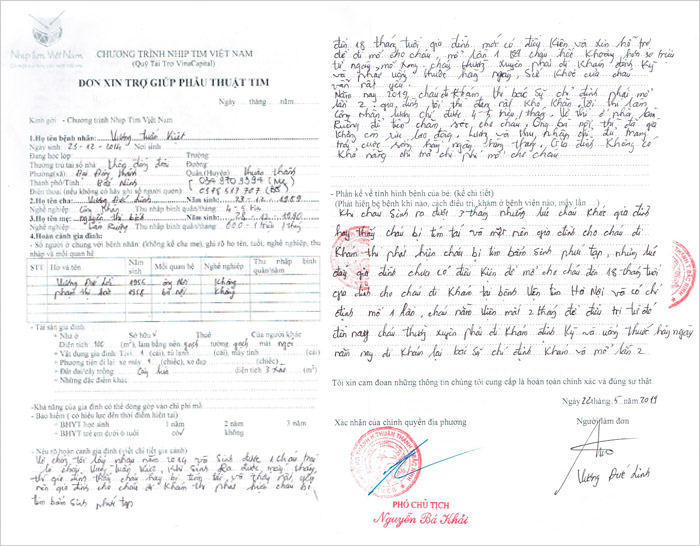 Nhịp tim Việt Nam
CHƯƠNG TRÌNH NHỊP TIM VIỆT NAM
(Quỹ Tài Trợ VinaCapital)
ĐƠN XIN TRỢ GIÚP PHẪU THUẬT TIM
Ngày tháng năm
Kính gửi - Chương trình Nhịp Tim Việt Nam
1.Họ tên bệnh nhân: Vương Tuấn Kiệt
Ngày sinh 23-12-2014 Nơi sinh
Đang học lớp Trường
Thường trú tại số nhà
Phường(xã) Đại Đồng Thành Quận(Huyện) Thuận Thành
Thành phố/Tỉnh Bắc Ninh
Điện thoại (nếu không có hãy ghi số người quen)
2.Họ tên cha: Vương Đức Dinh Năm sinh:
Nghề nghiệp Công Nhân Thu nhập bình quân/tháng 4-5
3.Họ tên mẹ: Năm sinh:
Nghề nghiệp Làm Ruộng Thu nhập bình quân/tháng
4.Hoàn cảnh gia đình:
- Số người ở chung với bệnh nhân (không kể cha mẹ), ghi rõ họ tên, tuổi, nghề nghiệp, thu nhập và mối quan hệ
STT Họ và tên Năm sinh Mối quan hệ Nghề nghiệp Thu nhập bình quân/năm
Vương Đức 1956 ông Nội Không
phạm thị 1958 bà nội Không
- Tài sản gia đình:
+ Nhà ở Sở hữu Thuê Của người khác
Diện tích 100 (m²), làm bằng nền gạch tường gạch mái ngói
+ Vật dụng gia đình: Tivi 1 (cái), tủ lạnh (cái), máy tính (cái)
+ Phương tiện đi lại xe máy 1 (chiếc), xe đạp (chiếc)
+ Đất đai/cây trồng Cấy lúa diện tích 3 sào (m²)
+ Những đặc điểm khác
-Khả năng của gia đình có thể đóng góp vào chi phí mổ
- Bảo hiểm ( có hiệu lực đến thời điểm hiện tại)
+ BHYT học sinh 1 năm 2 năm 3 năm
+ BHYT trẻ em dưới 6 tuổi có không
- Nêu rõ hoàn cảnh gia đình (viết chi tiết gia cảnh)
Vợ chồng tôi lấy nhau năm 2014 và Sinh được 1 cháu trai
là cháu Vương Tuấn Kiệt, Khi Sinh Ra được mấy tháng
thì gia đình thấy cháu hay bị tím tái và thấy
nên gia đình cho cháu đi Khám thì phát hiện cháu bị
tim bẩm Sinh phức tạp
đến 18 tháng tuổi gia đình mới có điều Kiện và xin hỗ trợ
để đi mổ cho cháu, mổ lần 1
từ ngày mổ xong cháu thường xuyên phải đi Khám định Kỳ
và phải uống thuốc hàng ngày, Sức Khỏe của cháu
vẫn rất yếu.
Năm nay 2019 cháu đi Khám, thì bác Sỹ chỉ định phải mổ
lần 2. gia đình tôi thì đang rất Khó Khăn, tôi thì làm
Công nhân lương chỉ được 4-5 triệu/tháng. Vợ thì ở nhà làm
Ruộng để tiện chăm sóc cho cháu, Ông bà nội thì đã già
Không còn sức lao động, Lương và thu nhập chỉ đủ trang
trải cuộc sống hàng ngày, hàng tháng, Gia đình Không có
Khả năng chi trả chi phí mổ cho cháu.
- Phần kể về tình hình bệnh của bé: (kể chi tiết)
(Phát hiện bệnh khi nào, cách điều trị, khám ở bệnh viện nào, mấy lần )
Khi cháu Sinh ra được 3 tháng những lúc cháu Khóc gia đình
hay thấy cháu bị tím tái và mệt nên gia đình cho cháu đi
Khám thì phát hiện cháu bị tim bẩm Sinh phức tạp, nhưng lúc
đấy gia đình chưa có điều Kiện để mổ cho cháu đến 18 tháng tuổi
gia đình cho cháu đi Khám tại bệnh Viện tim Hà Nội và có chỉ
định mổ 1 lần, cháu nằm Viện mất 2 tháng để điều trị từ đó
đến nay cháu thường xuyên phải đi Khám định Kỳ và uống thuốc hàng ngày
năm nay đi Khám lại bác Sỹ chỉ định Khám và mổ lần 2
Tôi xin cam đoan những thông tin chúng tôi cung cấp là hoàn toàn chính xác và đúng sự thật.
Ngày 22 tháng 5 năm 2019
Xác nhận của chính quyền địa phương Người làm đơn
PHÓ CHỦ TỊCH
Nguyễn Bá Khải
Vương Đức Dinh